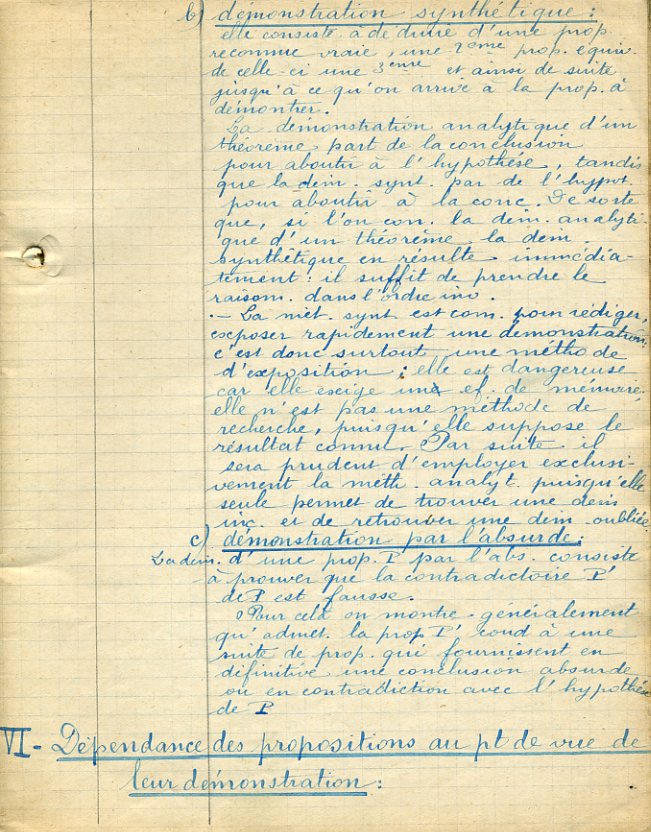 b) démonstration synthétique :
elle consiste à déduire d'une prop.
reconnue vraie, une 2ème prop. equiv.
de celle-ci une 3ème et ainsi de suite
jusqu'à ce qu'on arrive à la prop. à
démontrer.
La démonstration analytique d'un
théorème part de la conclusion
pour aboutir à l'hypothése, tandis
que la dém. synt. par de l'hypot.
pour aboutir à la conc. De sorte
que, si l'on con. la dem. analyti-
que d'un théorème la dém.
synthétique en résulte immédia-
tement : il suffit de prendre le
raisonn. dans l'ordre inv.
. — La mét. synt est com. pour rédiger,
exposer rapidement une démonstration;
c'est donc surtout une méthode
d'exposition ; elle est dangereuse
car elle exige un ef. de mémoire;
elle n'est pas une méthode de
recherche, puisqu'elle suppose le
résultat connu. Par suite il
sera prudent d'employer exclusi-
vement la méth. analyt. puisqu'elle
seule permet de trouver une dém
inc. et de retrouver une dém. oubliée.
c) démonstration par l'absurde :
La dém. d'une prop. P par l'abs. consiste
à prouver que la contradictoire P'
de P est fausse.
Pour celà on montre généralement
qu'admet. la prop P' cond à une
suite de prop. qui fournissent en
définitive une conclusion absurde
ou en contradiction avec l'hypothése
de P
VI - Dépendance des propositions au pt de vue de
leur démonstration :